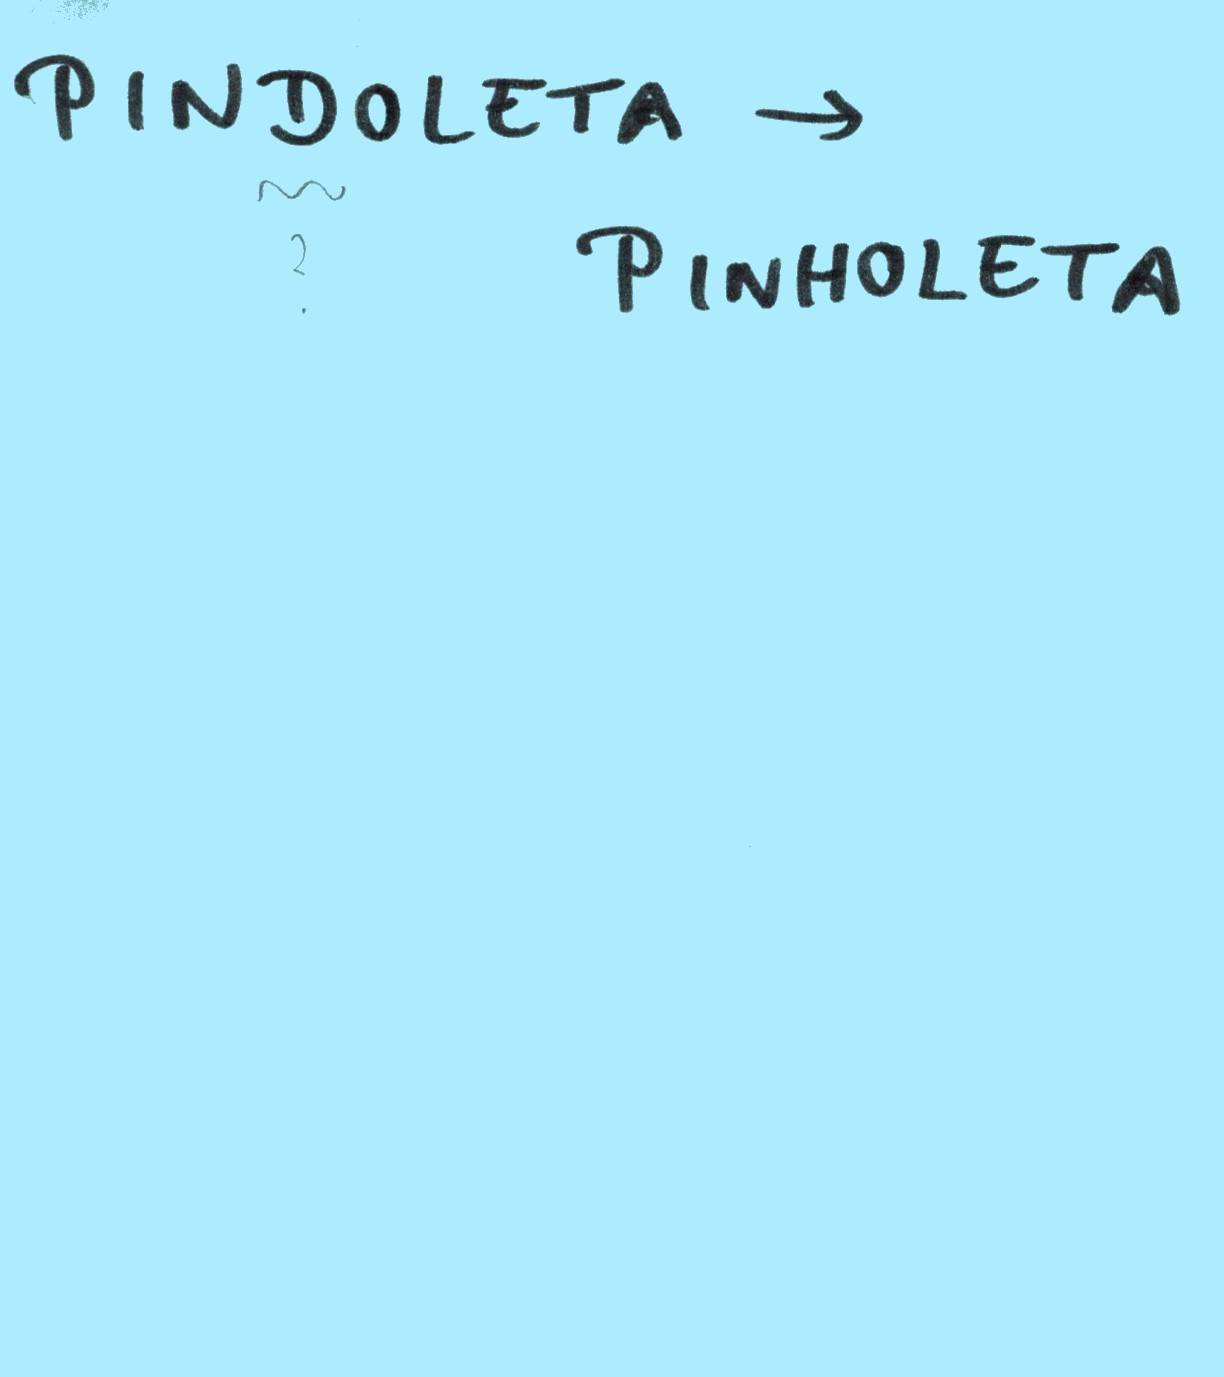 PINDOLETA →
?
PINHOLETA